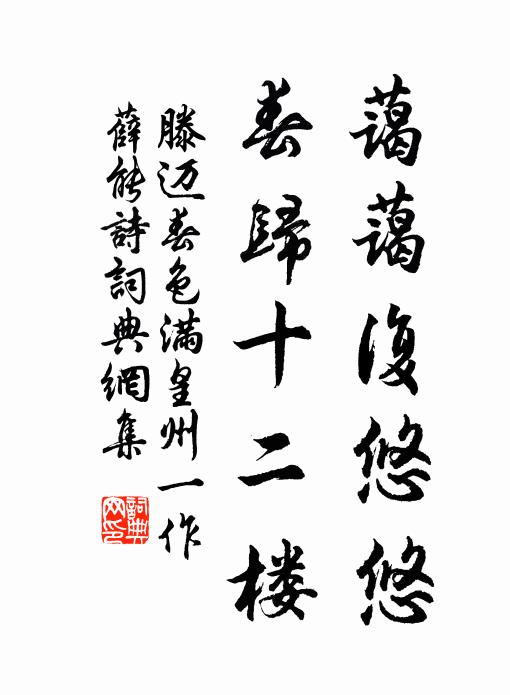 蔼蔼復悠悠
春歸十二楼
滕迈春色滿皇州一作
薛能詩詞典網集
詞典
网印